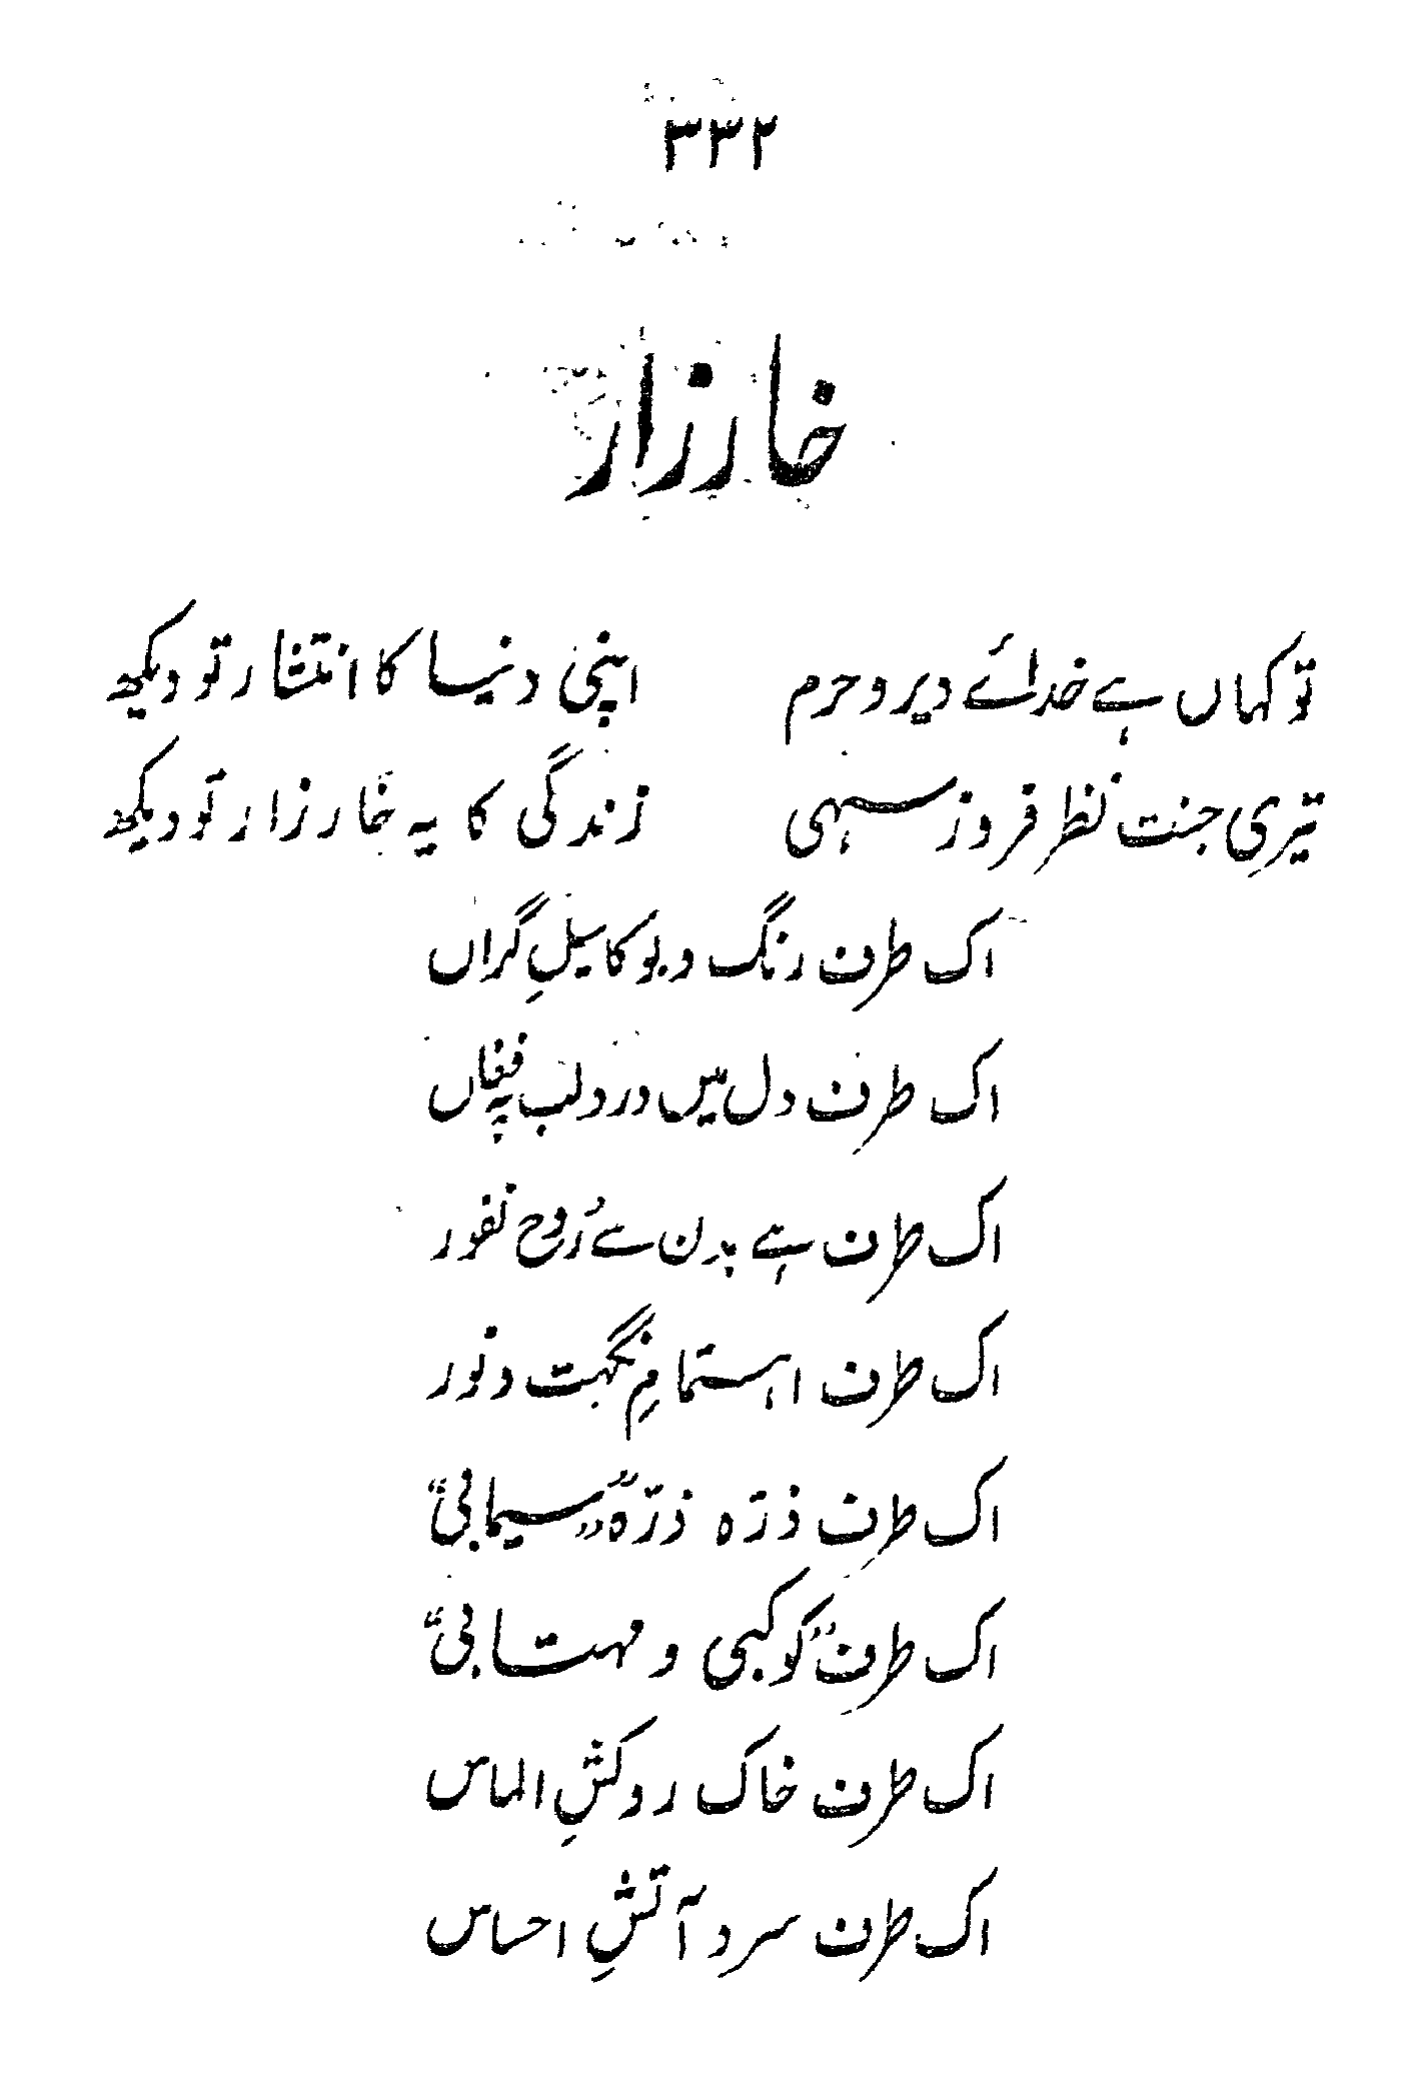 ۳۳۲
خارزار
تو کہاں ہے خدائے دیر و حرم اپنی دنیا کا انتشار تو دیکھ
تیری جنت نظر فروز سہی زندگی کا یہ خارزار تو دیکھ
اک طرف رنگ و بو کا سیلِ گراں
اک طرف دل میں درد لب پہ فغاں
اک طرف ہے بدن سے رُوح نفور
اک طرف اہتمامِ نگہت و نور
اک طرف ذرّہ ذرّہ "سیمابی"
اک طرف "کوکبی و مہتابی"
اک طرف خاک روکشِ الماس
اک طرف سرد آتشِ احساس